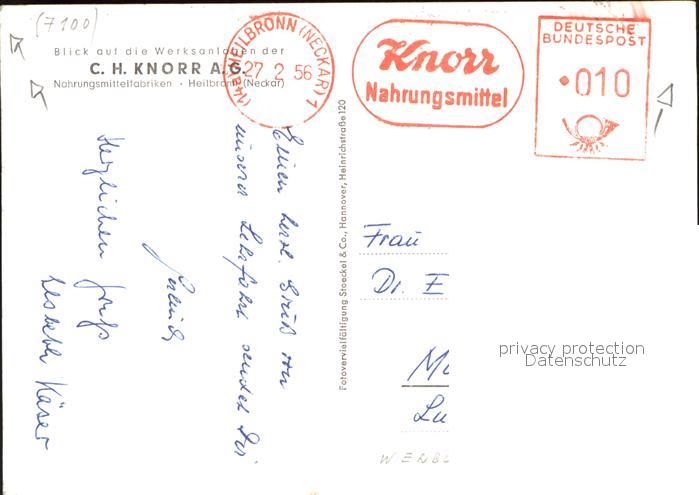 (7100)
Blick auf die Werksanlagen der
C. H. KNORR A.G.
Nahrungsmittelfabriken · Heilbronn (Neckar)
(14a) HEILBRONN (NECKAR) 1
27 2 56
Knorr
Nahrungsmittel
DEUTSCHE
BUNDESPOST
010
Einen herzl. Gruß von
unserer Lehrfahrt sendet Dir
Herzlichen Gruß
Lisbeth Käser
Fotovervielfältigung Stoeckel & Co., Hannover, Heinrichstraße 120
Frau
Dr. E
privacy protection
Datenschutz